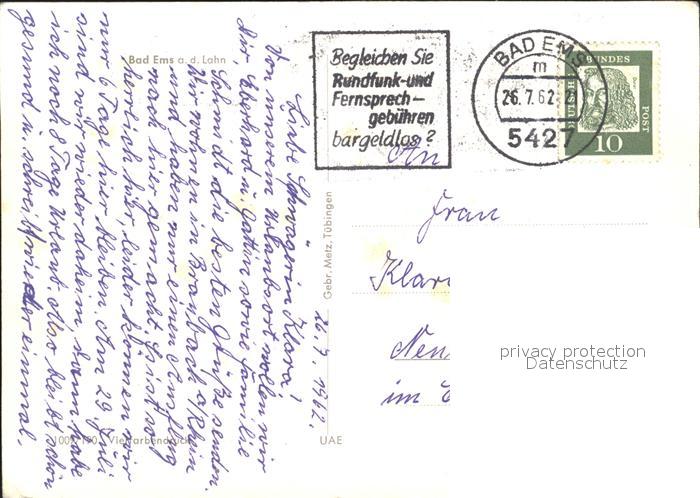 Bad Ems a. d. Lahn
Begleichen Sie
Rundfunk- und
Fernsprech-
gebühren
bargeldlos?
BAD EMS
m
26.7.62
5427
BUNDES
POST
10
Gebr. Metz, Tübingen
UAE
Vierfarbendruck
26.7.1962.
Liebe Schwägerin Klara!
Von unserem Urlaubsort wollen wir
dir, Eberhard u. Gattin sowie Familie
Schmidt die besten Grüße senden.
Wir wohnen in Braubach a/Rhein
und haben nur einen Ausflug
nach hier gemacht. Es ist so
herrlich hier, leider können wir
nur 6 Tage hier bleiben. Am 29. Juli
sind wir wieder daheim, dann habe
ich noch 8 Tage Urlaub. Also bleibt schön
gesund u. schreibt wieder einmal.
An
Frau
Klar
Neu
im
privacy protection
Datenschutz